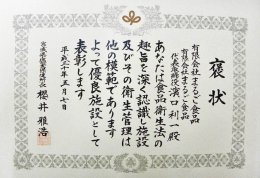 褒状
有限会社まるご食品
有限会社まるご食品
代表取締役 濱口利一殿
あなたは食品衛生法の
趣旨を深く認識し施設
及びその衛生管理は
他の模範であります
よって優良施設として
表彰します
平成二十年五月七日
櫻井雅浩